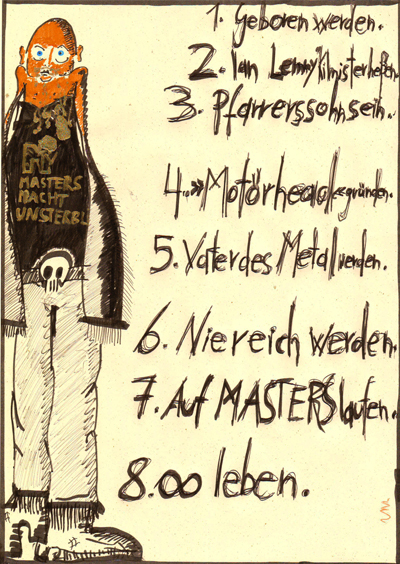 1. Geboren werden.
2. Ian Lemmy Kilmister heißen.
3. Pfarrerssohn sein.
4. »Motörhead« gründen.
5. Vater des Metal werden.
6. Nie reich werden.
7. Auf MASTERS laufen.
8. ∞ leben.
MASTERS
MACHT
UNSTERBL